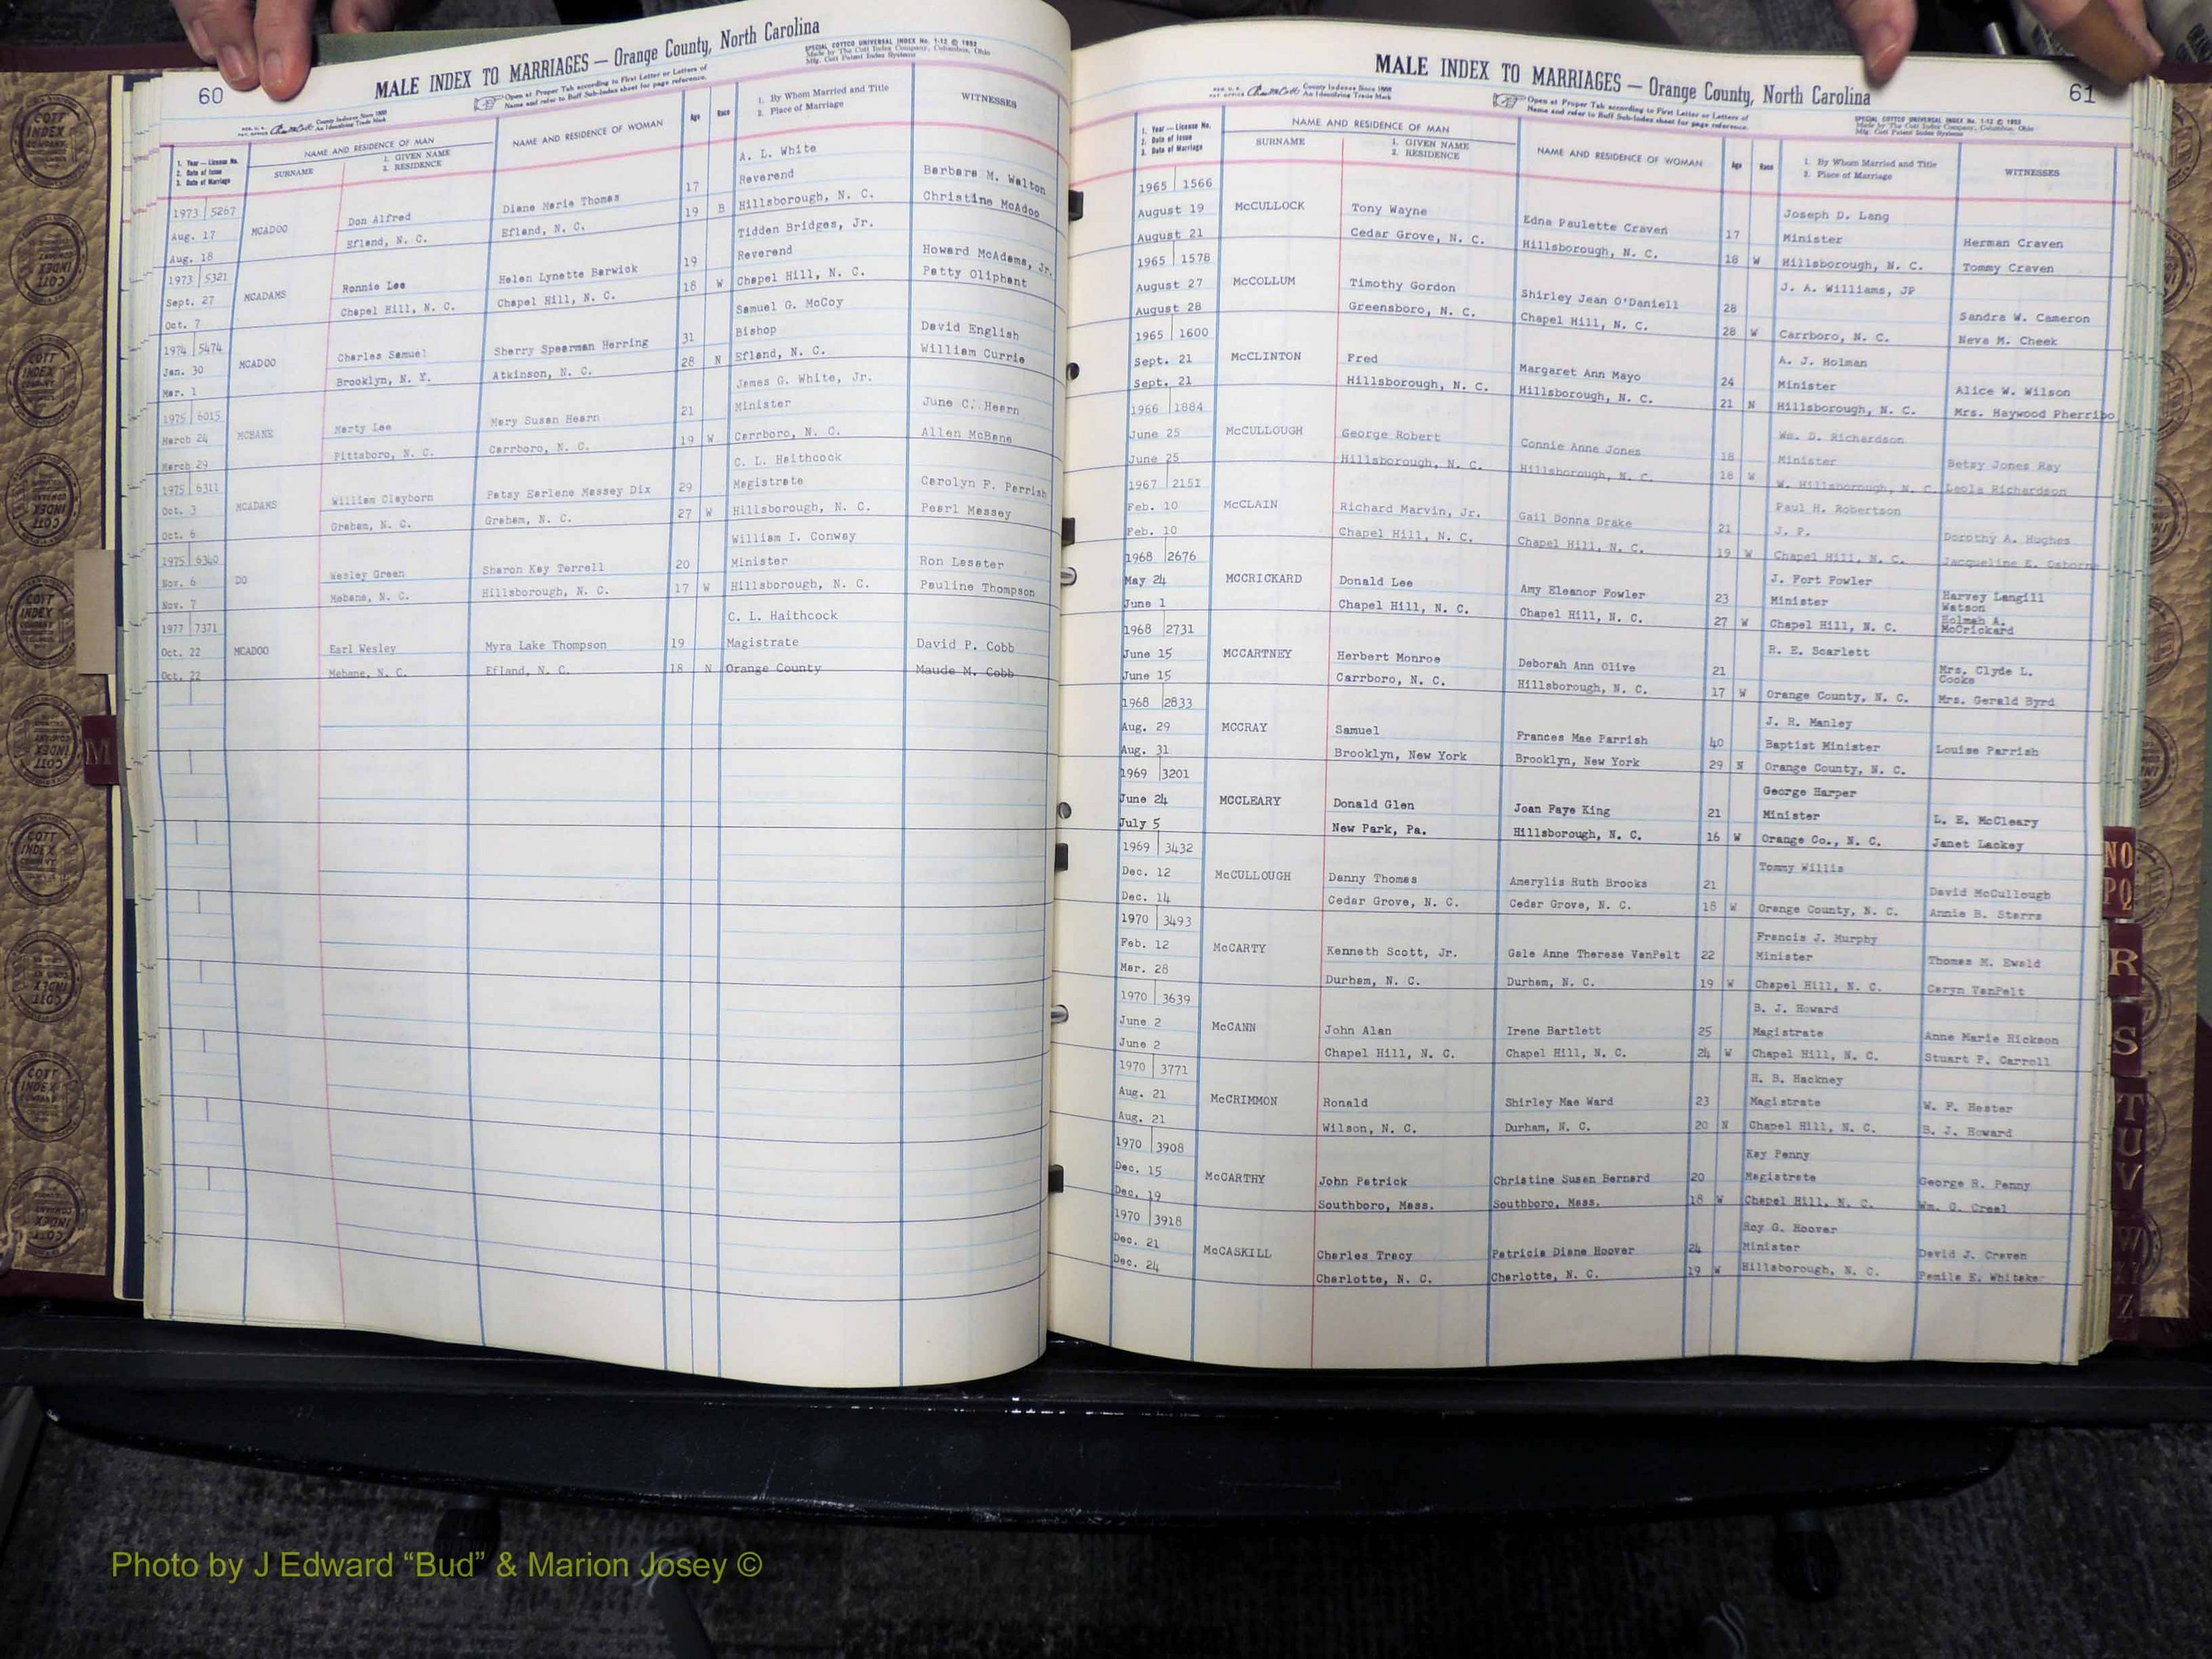 60
MALE INDEX TO MARRIAGES — Orange County, North Carolina
SPECIAL COTTCO UNIVERSAL INDEX No. 1-12 © 1952
Made by The Cott Index Company, Columbus, Ohio
Mfg. Cott Patent Index Systems
Open at Proper Tab according to First Letter or Letters of
Name and refer to Buff Sub-Index sheet for page reference.
County Indexes Since 1888
An Identifying Trade Mark
1. Year — License No.
2. Date of Issue
3. Date of Marriage
NAME AND RESIDENCE OF MAN
SURNAME
1. GIVEN NAME
2. RESIDENCE
NAME AND RESIDENCE OF WOMAN
Age
Race
1. By Whom Married and Title
2. Place of Marriage
WITNESSES
A. L. White
1973 5267 Don Alfred Diane Marie Thomas 17 Reverend Barbara M. Walton
Aug. 17 MCADOO Efland, N. C. Efland, N. C. 19 B Hillsborough, N. C. Christine McAdoo
Aug. 18
Tidden Bridges, Jr.
1973 5321 Ronnie Lee Helen Lynette Barwick 19 Reverend Howard McAdams, Jr.
Sept. 27 MCADAMS Chapel Hill, N. C. Chapel Hill, N. C. 18 W Chapel Hill, N. C. Patty Oliphant
Oct. 7
Samuel G. McCoy
1974 5474 Charles Samuel Sherry Spearman Herring 31 Bishop David English
Jan. 30 MCADOO Brooklyn, N. Y. Atkinson, N. C. 28 N Efland, N. C. William Currie
Mar. 1
James G. White, Jr.
1975 6015 Marty Lee Mary Susan Hearn 21 Minister June C. Hearn
March 24 MCBANE Pittsboro, N. C. Carrboro, N. C. 19 W Carrboro, N. C. Allen McBane
March 29
C. L. Haithcock
1975 6311 William Clayborn Patsy Earlene Massey Dix 29 Magistrate Carolyn F. Parrish
Oct. 3 MCADAMS Graham, N. C. Graham, N. C. 27 W Hillsborough, N. C. Pearl Massey
Oct. 6
William I. Conway
1975 6340 Wesley Green Sharon Kay Terrell 20 Minister Ron Lasater
Nov. 6 DO Mebane, N. C. Hillsborough, N. C. 17 W Hillsborough, N. C. Pauline Thompson
Nov. 7
C. L. Haithcock
1977 7371
Oct. 22 MCADOO Earl Wesley Myra Lake Thompson 19 Magistrate David P. Cobb
Oct. 22 Mebane, N. C. Efland, N. C. 18 N Orange County Maude M. Cobb
M
61
MALE INDEX TO MARRIAGES — Orange County, North Carolina
County Indexes Since 1888
An Identifying Trade Mark
Open at Proper Tab according to First Letter or Letters of
Name and refer to Buff Sub-Index sheet for page reference.
SPECIAL COTTCO UNIVERSAL INDEX No. 1-12 © 1952
Made by The Cott Index Company, Columbus, Ohio
Mfg. Cott Patent Index Systems
1. Year — License No.
2. Date of Issue
3. Date of Marriage
NAME AND RESIDENCE OF MAN
SURNAME
1. GIVEN NAME
2. RESIDENCE
NAME AND RESIDENCE OF WOMAN
Age
Race
1. By Whom Married and Title
2. Place of Marriage
WITNESSES
1965 1566 Joseph D. Lang
August 19 McCULLOCK Tony Wayne Edna Paulette Craven 17 Minister Herman Craven
August 21 Cedar Grove, N. C. Hillsborough, N. C. 18 W Hillsborough, N. C. Tommy Craven
1965 1578 J. A. Williams, JP
August 27 McCOLLUM Timothy Gordon Shirley Jean O'Daniell 28 Sandra W. Cameron
August 28 Greensboro, N. C. Chapel Hill, N. C. 28 W Carrboro, N. C. Neva M. Cheek
1965 1600 A. J. Holman
Sept. 21 McCLINTON Fred Margaret Ann Mayo 24 Minister Alice W. Wilson
Sept. 21 Hillsborough, N. C. Hillsborough, N. C. 21 N Hillsborough, N. C. Mrs. Haywood Pherribo
1966 1884 Wm. D. Richardson
June 25 McCULLOUGH George Robert Connie Anne Jones 18 Minister Betsy Jones Ray
June 25 Hillsborough, N. C. Hillsborough, N. C. 18 W W. Hillsborough, N. C. Leola Richardson
1967 2151 Paul H. Robertson
Feb. 10 McCLAIN Richard Marvin, Jr. Gail Donna Drake 21 J. P. Dorothy A. Hughes
Feb. 10 Chapel Hill, N. C. Chapel Hill, N. C. 19 W Chapel Hill, N. C. Jacqueline E. Osborne
1968 2676 J. Fort Fowler
May 24 MCCRICKARD Donald Lee Amy Eleanor Fowler 23 Minister Harvey Langill Watson
June 1 Chapel Hill, N. C. Chapel Hill, N. C. 27 W Chapel Hill, N. C. Holmah A. McCrickard
1968 2731 R. E. Scarlett
June 15 MCCARTNEY Herbert Monroe Deborah Ann Olive 21 Mrs. Clyde L. Cooke
June 15 Carrboro, N. C. Hillsborough, N. C. 17 W Orange County, N. C. Mrs. Gerald Byrd
1968 2833 J. R. Manley
Aug. 29 MCCRAY Samuel Frances Mae Parrish 40 Baptist Minister Louise Parrish
Aug. 31 Brooklyn, New York Brooklyn, New York 29 N Orange County, N. C.
1969 3201 George Harper
June 24 MCCLEARY Donald Glen Joan Faye King 21 Minister L. E. McCleary
July 5 New Park, Pa. Hillsborough, N. C. 16 W Orange Co., N. C. Janet Lackey
1969 3432 Tommy Willis
Dec. 12 McCULLOUGH Danny Thomas Amerylis Ruth Brooks 21 David McCullough
Dec. 14 Cedar Grove, N. C. Cedar Grove, N. C. 18 W Orange County, N. C. Annie B. Starrs
1970 3493 Francis J. Murphy
Feb. 12 McCARTY Kenneth Scott, Jr. Gale Anne Therese VanPelt 22 Minister Thomas M. Ewald
Mar. 28 Durham, N. C. Durham, N. C. 19 W Chapel Hill, N. C. Caryn VanPelt
1970 3639 B. J. Howard
June 2 McCANN John Alan Irene Bartlett 25 Magistrate Anne Marie Hickson
June 2 Chapel Hill, N. C. Chapel Hill, N. C. 24 W Chapel Hill, N. C. Stuart P. Carroll
1970 3771 H. B. Hackney
Aug. 21 McCRIMMON Ronald Shirley Mae Ward 23 Magistrate W. F. Hester
Aug. 21 Wilson, N. C. Durham, N. C. 20 N Chapel Hill, N. C. B. J. Howard
1970 3908 Kay Penny
Dec. 15 McCARTHY John Patrick Christine Susan Bernard 20 Magistrate George R. Penny
Dec. 19 Southboro, Mass. Southboro, Mass. 18 W Chapel Hill, N. C. Wm. O. Creel
1970 3918 Roy G. Hoover
Dec. 21 McCASKILL Charles Tracy Patricia Diane Hoover 24 Minister David J. Craven
Dec. 24 Charlotte, N. C. Charlotte, N. C. 19 W Hillsborough, N. C. Pamile E. Whitaker
NO
PQ
R
S
T
U
V
W
Z
Photo by J Edward “Bud” & Marion Josey ©